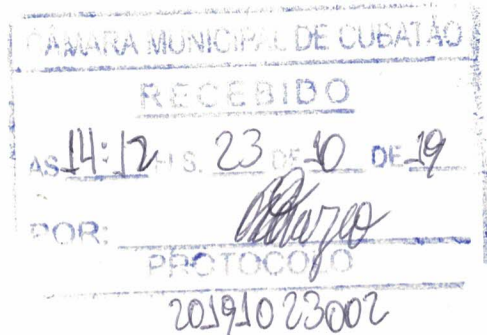 CÂMARA MUNICIPAL DE CUBATÃO
RECEBIDO
AS 14:12 H S. 23 DE 10 DE 19
POR:
PROTOCOLO
20191023002